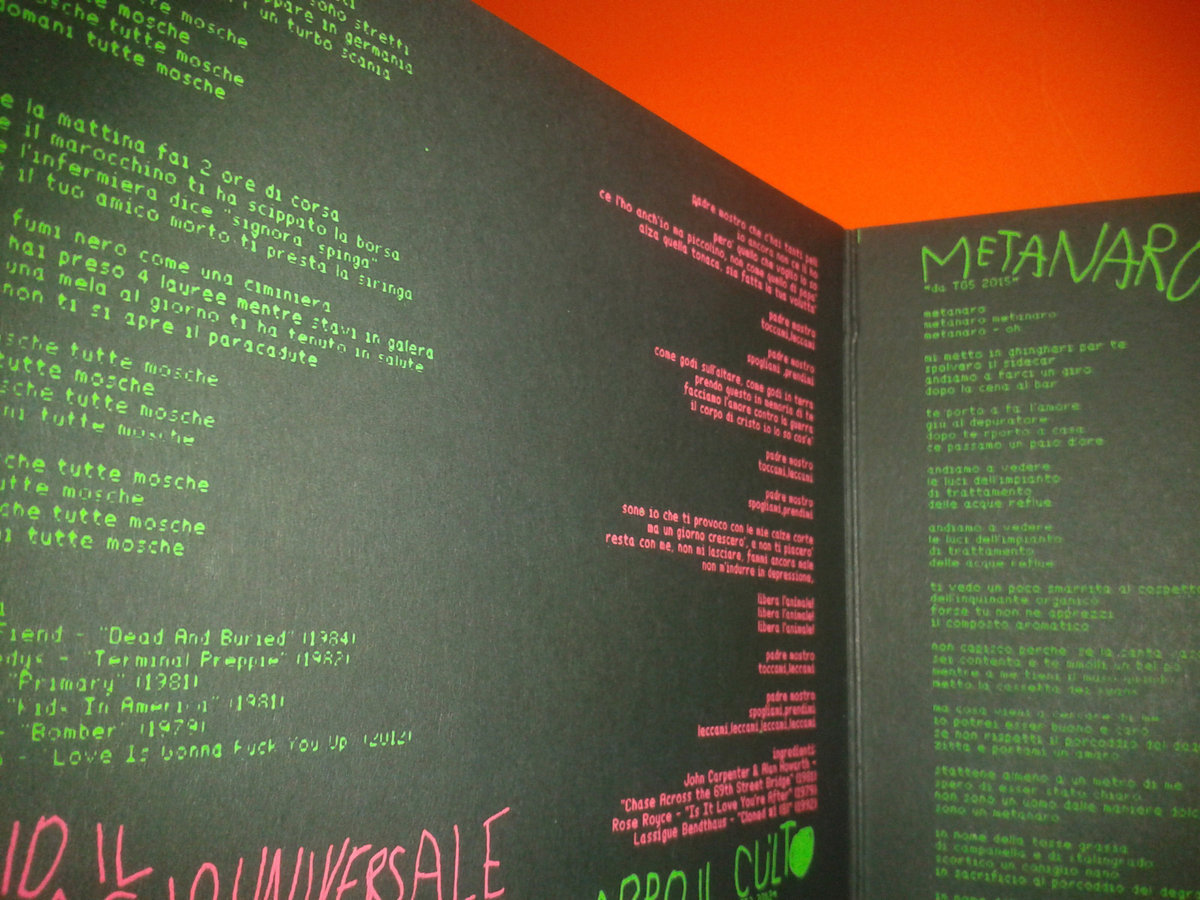 sono stretti
in germania
un turbo scania
mosche tutte mosche
domani tutte mosche
la mattina fai 2 ore di corsa
il marocchino ti ha scippato la borsa
l'infermiera dice "signora spinga"
il tuo amico morto ti presta la siringa
fumi nero come una ciminiera
hai preso 4 lauree mentre stavi in galera
una mela al giorno ti ha tenuto in salute
non ti si apre il paracadute
tutte mosche
tutte mosche
tutte mosche
tutte mosche
tutte mosche
tutte mosche
tutte mosche
tutte mosche
Fiend - "Dead And Buried" (1984)
"Terminal Preppie" (1982)
"Primary" (1981)
"Kids In America" (1981)
- "Bomber" (1979)
- "Love Is Gonna Fuck You Up" (2012)
IL
UNIVERSALE
padre mostro che c'hai tanti peli
io ancora non ce li ho
pero' quello che voglio lo so
ce l'ho anch'io ma piccolino, non come quello di papa'
alza quella tonaca, sia fatta la tua volutta'
padre mostro
toccami,leccami
padre mostro
spogliami,prendimi
come godi sull'altare, come godi in terra
prendo questo in memoria di te
facciamo l'amore contro la guerra
il corpo di cristo io lo so cos'e'
padre mostro
toccami,leccami
padre mostro
spogliami,prendimi
sono io che ti provoco con le mie calze corte
ma un giorno crescero', e non ti piacero'
resta con me, non mi lasciare, fammi ancora male
non m'indurre in depressione,
libera l'animale!
libera l'animale!
libera l'animale!
padre mostro
toccami,leccami
padre mostro
spogliami,prendimi
leccami,leccami,leccami,leccami
ingredienti
John Carpenter & Alan Howarth -
"Chase Across the 69th Street Bridge" (1981)
Rose Royce - "Is It Love You're After" (1979)
Lassigue Bendthaus - "Cloned
IL CULTO
METANARO
"da TG5 2015"
metanaro
metanaro metanaro
metanaro - oh
mi metto in ghingheri per te
spolvero il sidecar
andiamo a farci un giro
dopo la cena al bar
te porto a fa l'amore
giu al depuratore
dopo te rporto a casa
ce passamo un paio d'ore
andiamo a vedere
le luci dell'impianto
di trattamento
delle acque reflue
andiamo a vedere
le luci dell'impianto
di trattamento
delle acque reflue
ti vedo un poco smarrita al cospetto
dell'inquinante organico
forse tu non ne apprezzi
il composto aromatico
non capisco perche' se la canta
sei contenta e te smolli un bel po
mentre a me tieni il muso
metto la cassetta dei swans
ma cosa vieni a cercare di me
io potrei esser buono e caro
se non rispetti il porcoddio del
zitta e portami un amaro
stattene almeno a un metro di me
spero di esser stato chiaro
non sono un uomo dalle maniere
sono un metanaro
in nome della tosse grassa
di campanella e di stalingrado
scortico un coniglio nano
in sacrificio al porcoddio del